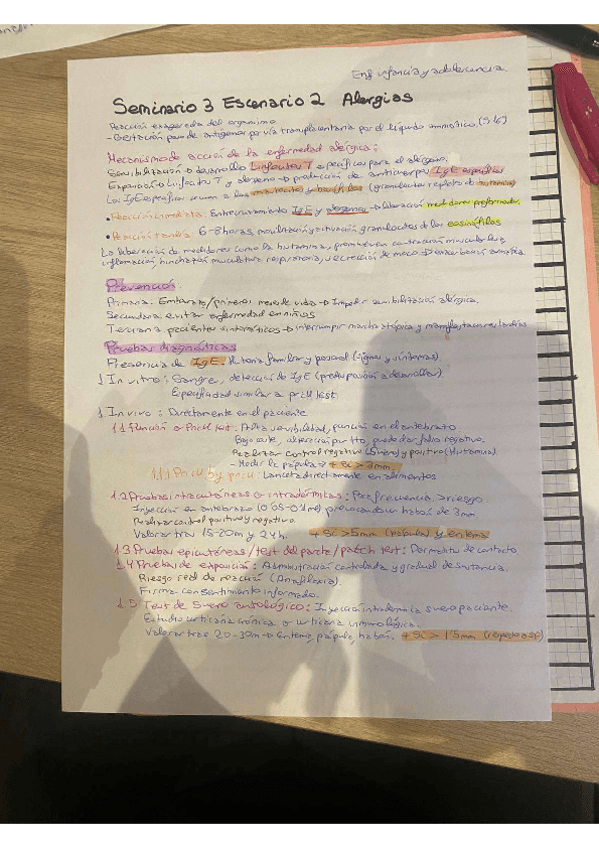 Enf infancia y adolescencia.
Seminario 3 Escenario 2 Alergias
Reacción exagerada del organismo
- Gestación paso de antígenos por vía transplacentaria por el líquido amniótico. (S16)
Mecanismo de acción de la enfermedad alérgica:
Sensibilización → desarrollo Linfocitos T específicos para el alérgeno.
Expansión → Linfocitos T y alérgeno → producción de anticuerpos IgE específicos
Los IgE específicos se unen a los mastocitos y basófilos (granulocitos repletos de sustancias)
• Reacción inmediata: Entrecruzamiento IgE y alérgeno → liberación mediadores preformados.
• Reacción tardía: 6-8 horas, movilización y activación granulocitos de los eosinófilos
La liberación de mediadores como la histamina, promueven contracción muscular lisa,
inflamación, hinchazón musculatura respiratoria, y secreción de moco →
Prevención:
Primaria: Embarazo/primeros meses de vida → Impedir sensibilización alérgica.
Secundaria: evitar enfermedad en niños
Terciaria pacientes sintomáticos → interrumpir marcha atópica y manifestaciones tardías
Pruebas diagnósticas
Presencia de IgE. Historia familiar y personal (signos y síntomas)
1 In vitro: Sangre, detección de IgE (predisposición a desarrollar)
Especificidad similar a prick test.
1 In vivo: Directamente en el paciente
1.1 Punción o Prick test: Alta sensibilidad, punción en el antebrazo.
Bajo coste, alteración por tto, puede dar falso negativo.
Realizar control negativo (Suero) y positivo (Histamina).
- Medir la pápula → + SC > 3mm
1.1.1 Prick by prick: Lanceta directamente en alimentos
1.2 Pruebas intracutáneas o intradérmicas: Poca frecuencia >riesgo.
Inyección en antebrazo (0'05-0'1ml) provocando un habón de 3mm.
Realizar control positivo y negativo.
Valorar tras 15-20m y 24h. + SC > 5mm (habón) y eritema
1.3 Pruebas epicutáneas/test del parche/patch test: Dermatitis de contacto.
1.4 Prueba de exposición: Administración controlada y gradual de sustancia.
Riesgo real de reacción (Anafilaxia).
Firma consentimiento informado.
1.5 Test de suero autólogo: Inyección intradermica suero paciente.
Estudio urticaria crónica o urticaria inmunológica.
Valorar tras 20-30m → Eritema, pápula, habón. + SC > 1'5mm